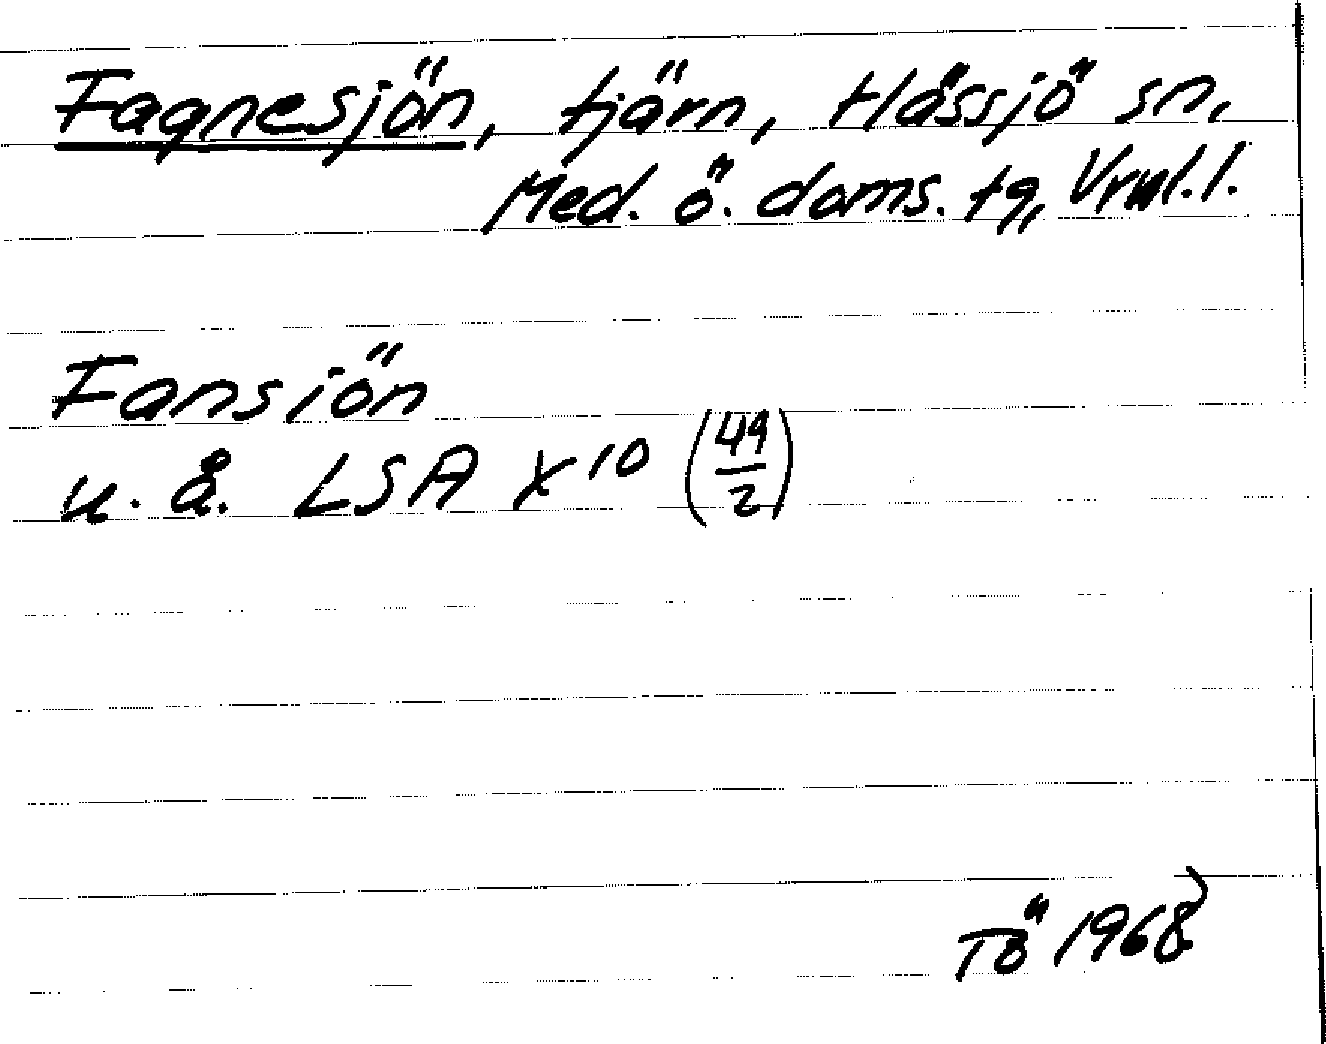 Fagnesjön, tjärn, Hässjö sn,
Med. ö. doms. tg, Vrnl. l.
Fansiön
u. å. LSA X 10 (49/2)
TÖ 1968